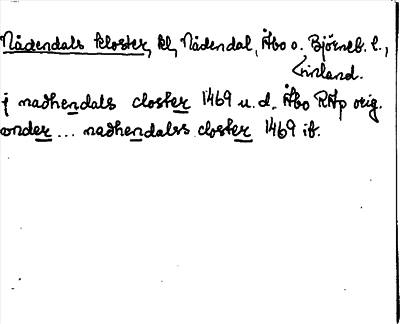 Nådendals kloster, kl, Nådendal, Åbo o. Björneb. l.,
Finland.
j nadhendals closter 1469 u.d. Åbo RAp orig.
onder ... nadhendalss closter 1469 ib.